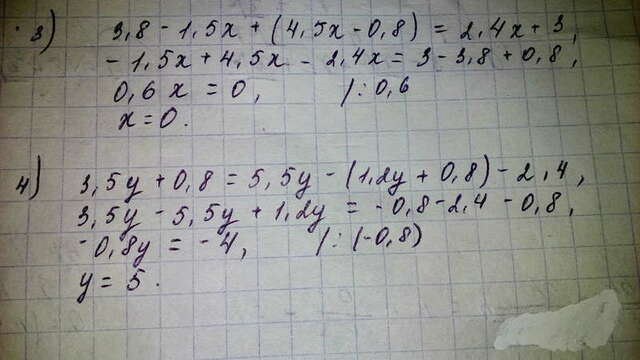 3)
3,8 - 1,5x + (4,5x - 0,8) = 2,4x + 3,
- 1,5x + 4,5x - 2,4x = 3 - 3,8 + 0,8,
0,6x = 0, /: 0,6
x = 0.
4)
3,5y + 0,8 = 5,5y - (1,2y + 0,8) - 2,4,
3,5y - 5,5y + 1,2y = -0,8 - 2,4 - 0,8,
- 0,8y = -4, /: (-0,8)
y = 5.